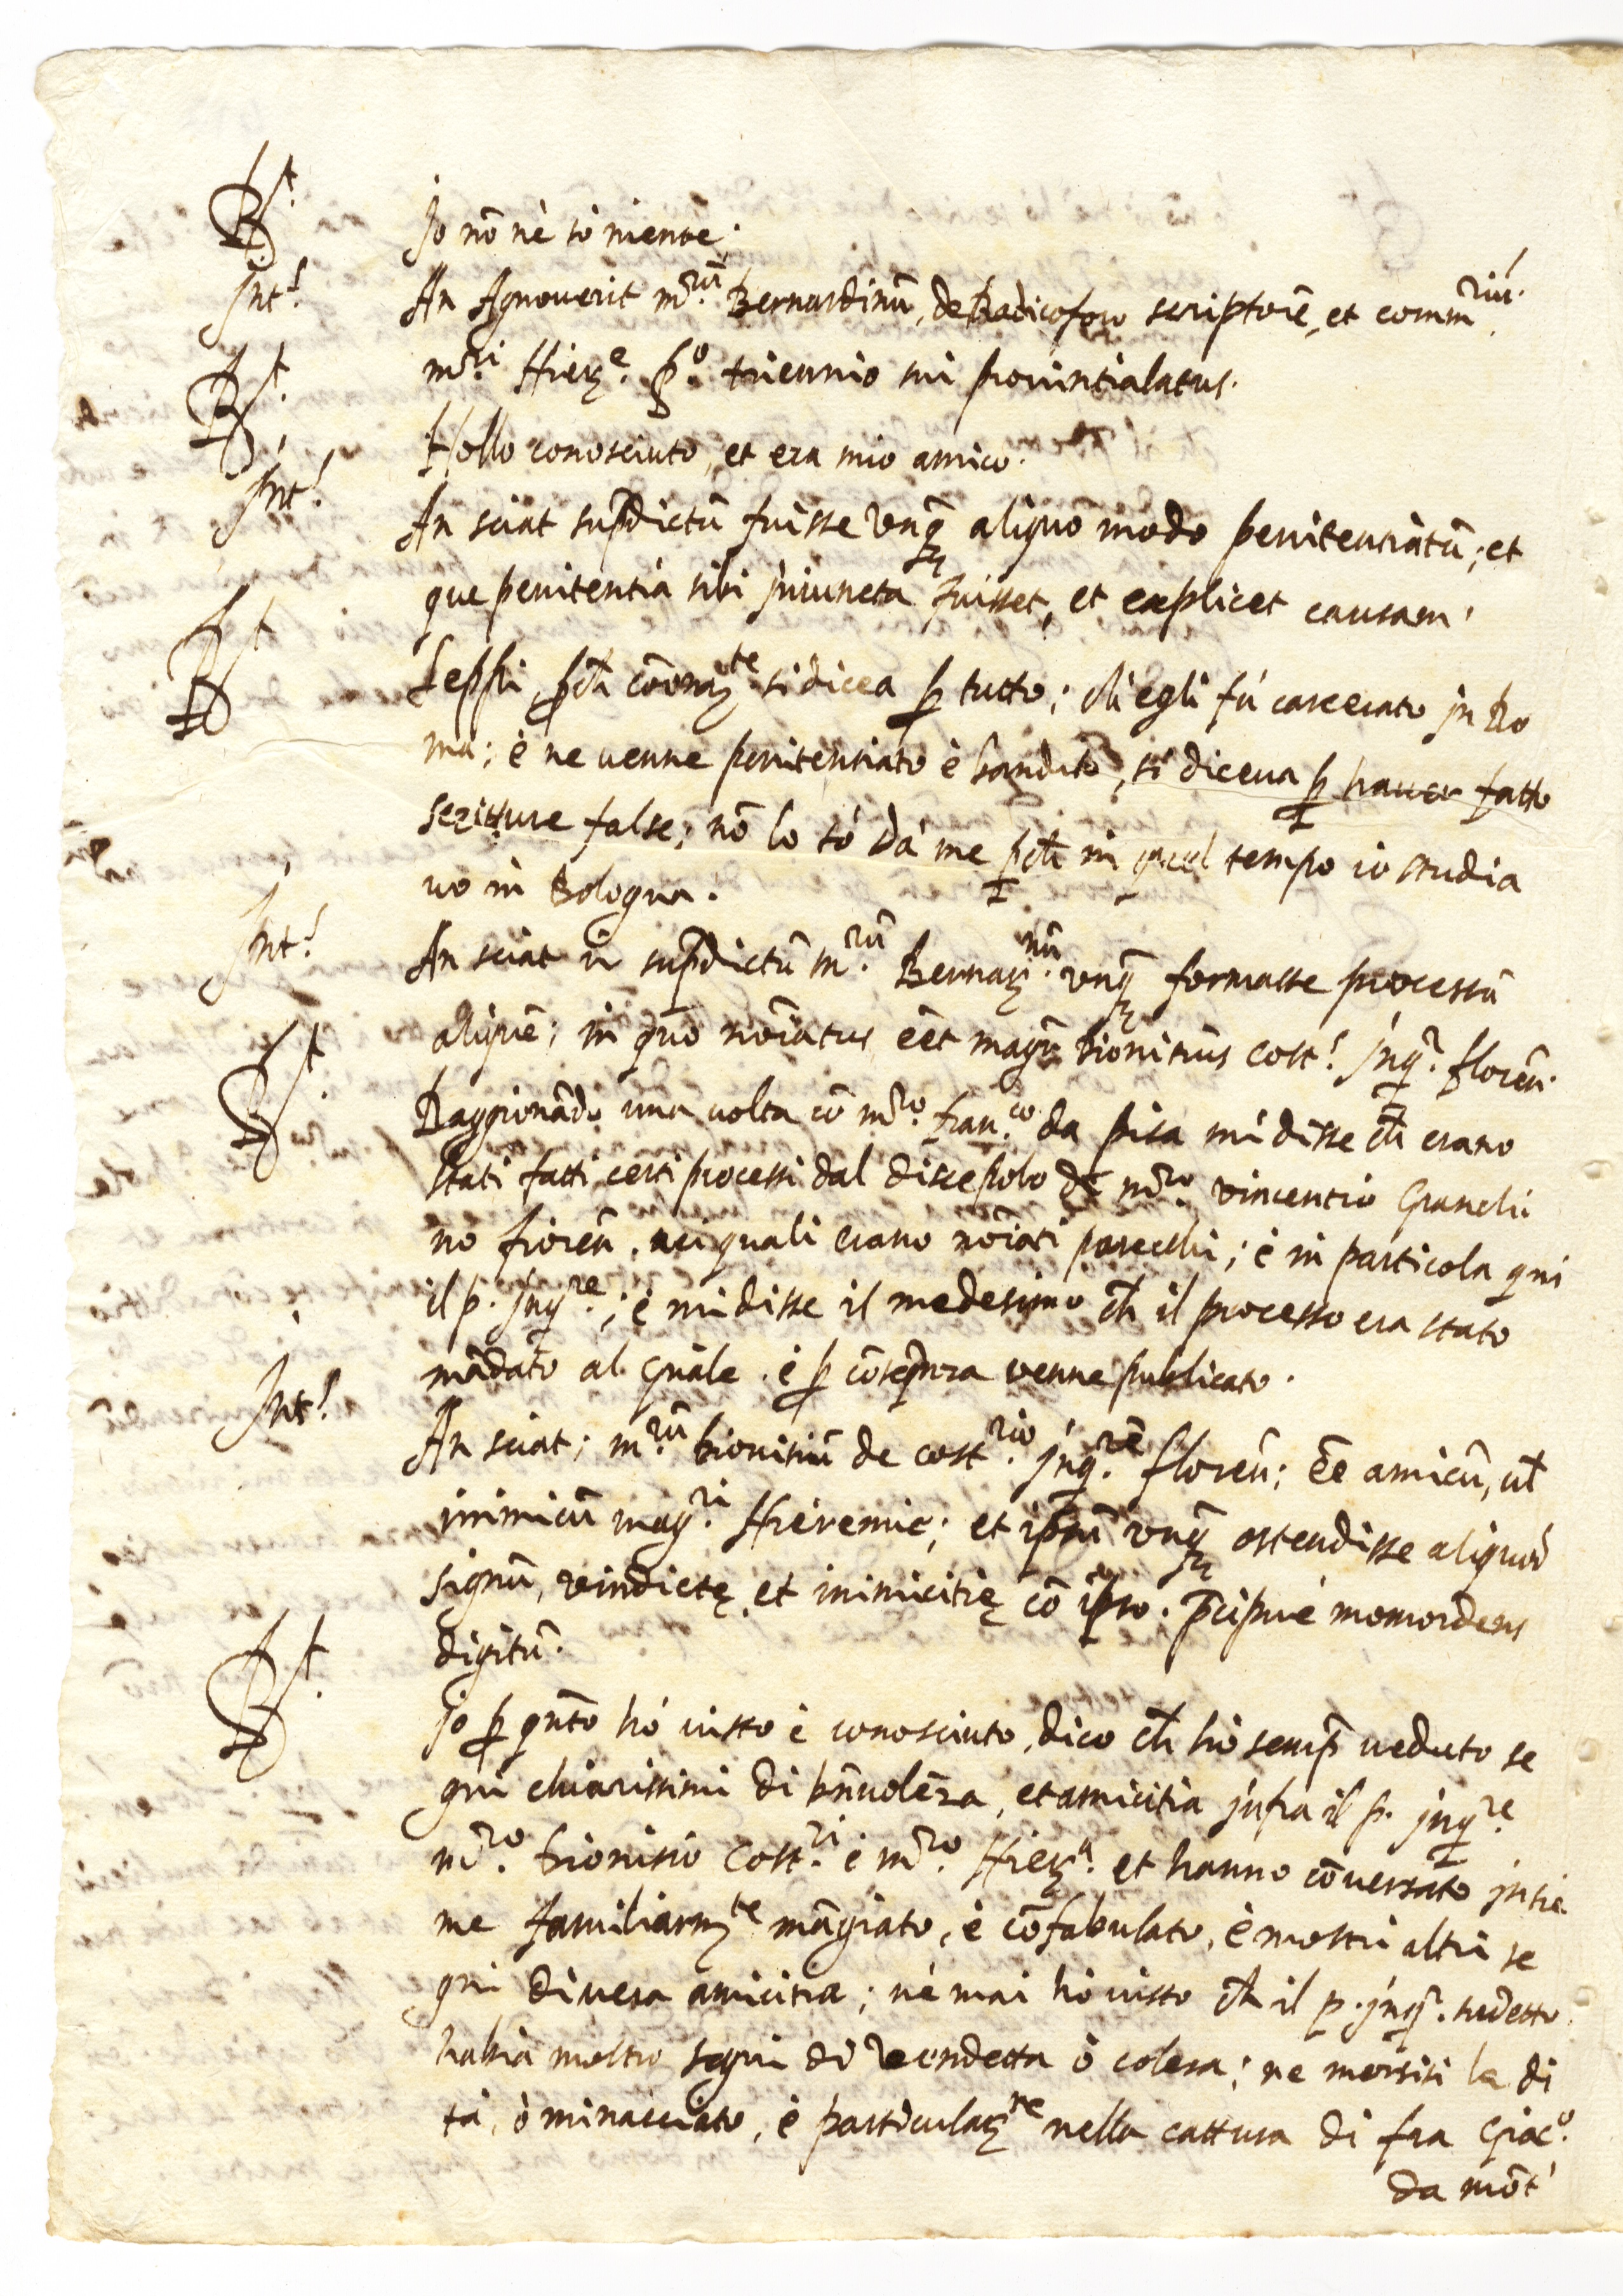 Rt. Jo nõ nè sò niente.
Int.s An Agnoverit m.rũ Bernardinũ, de Radicoforo scriptorẽ, et comm.riũ
m.ri Hier.e p.o triennio sui provintialatus.
Rt. Hollo conosciuto, et era mio amico.
Int.s An sciat sup̃dictũ fuisse unq̃ aliquo modo penitentiatũ; et
que penitentia sibi iniuncta fuisset, et explicet causam.
Rt. Seppi p̃ch̃ cõm.te si dicea p̱ tutto; ch̃ egli fú carcerato in Ro
ma; è ne venne penitentiato è bandito, si diceva p̱ haver fatto
scritture false; nõ lo só dà me p̱ch̃ in quel tempo io studia
vo in Bologna.
Int.s An sciat sup̃dictũ m.rũ Bernar.nũ unq̃ formasse processũ
aliquẽ; in quo noĩatus eẽt magr̃ Dionitius Cost.s Inq.r floreñ.
Rt. Raggionãdo una volta cõ m.ro fran.co da pisa mi disse ch̃ erano
stati fatti certi processi dal discepolo de m.ro vincentio Granchi
no fioreñ. nei quali erano noĩati parecchi; è in particola qui
il p. Inq.re; è mi disse il medesimo ch̃ il processo era stato
mãdato al Gñale. è p̱ cõseq̃nza venne publicato.
Int.s An sciat; m.rũ Dionisiũ de cost.rio inq.rẽ floreñ; eẽ amicũ, ul̃
inimicũ mag.ri Hieremie; et ip̃sũ unq̃ ostendisse aliquod
signũ, vindictę et inimicitię cõ ip̃so. p̃cipue momordens
digitũ.
Rt. Jo p̱ qñto hó visto è conosciuto, dico ch̃ hó semp̃ veduto se
gni chiarissimi di bñvolẽza, et amicitia infra il p. inq.re
m.ro Dionisio Cost.ri è m.ro Hier.a et hanno cõversato insie
me familiarm.te mãgiato, è cõfabulato, è mostri altri se
gni di vera amicitia; nè mai hò visto ch̃ il p. inq.r sudetto
habia mostro segni di vendetta ò colera; ne morsisi la di
ta, ò minacciato, è particular.te nella cattura di fra Giac.o
da mõt